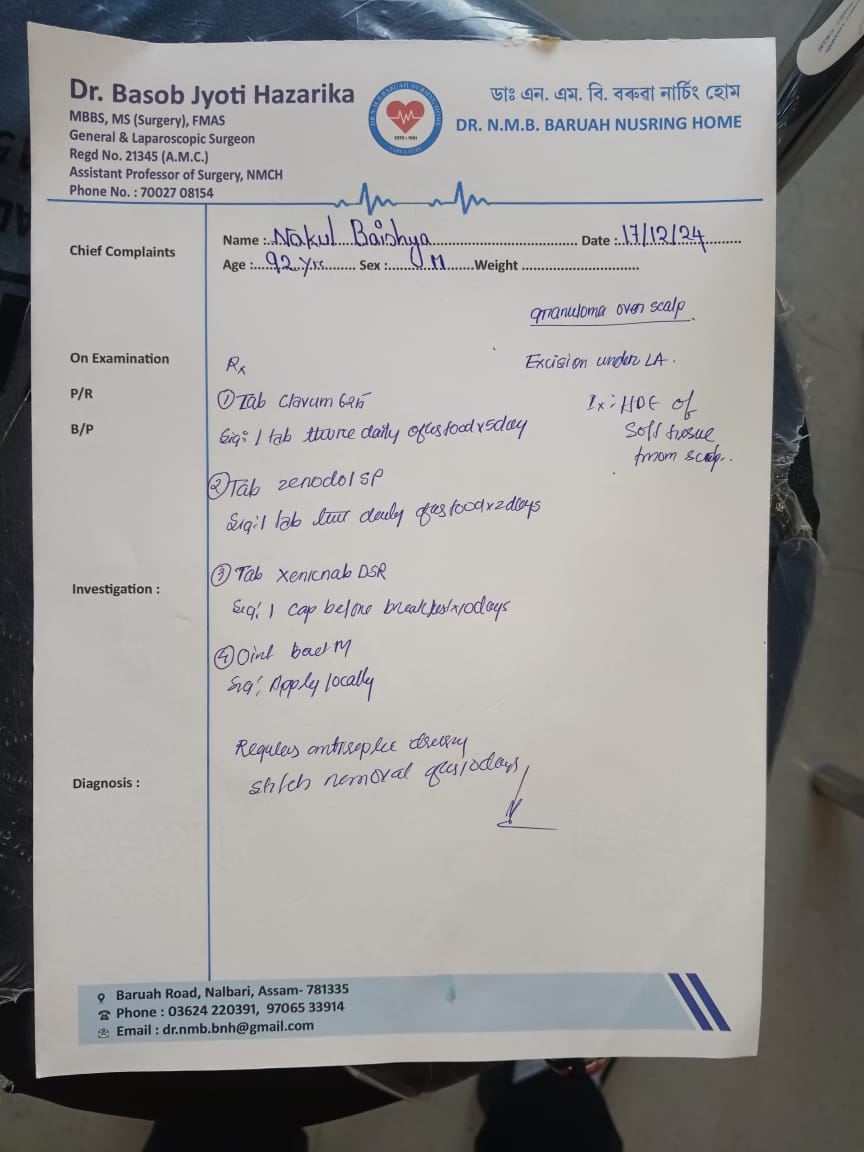 Dr. Basob Jyoti Hazarika
MBBS, MS (Surgery), FMAS
General & Laparoscopic Surgeon
Regd No. 21345 (A.M.C.)
Assistant Professor of Surgery, NMCH
Phone No. : 70027 08154
ডাঃ এন. এম. বি. বৰুৱা নার্চিং হোম
DR. N.M.B. BARUAH NUSRING HOME
Chief Complaints
Name : Nakul Baishya Date : 17/12/24
Age : 92 yrs Sex : M Weight
granuloma over scalp
On Examination
Rx
Excision under LA.
P/R
① Tab Clavum 625
Ix: HDE of
B/P
Sig: 1 tab daily food x 5day
Soft tissue
from scalp.
② Tab zenodol SP
Sig: 1 tab daily food x 2days
③ Tab DSR
Investigation :
Sig: 1 cap before breakfast x 10days
④ Oint bact M
Sig: Apply locally
Regular antiseptic
Stitch removal 10days
Diagnosis :
Baruah Road, Nalbari, Assam- 781335
Phone : 03624 220391, 97065 33914
Email : dr.nmb.bnh@gmail.com